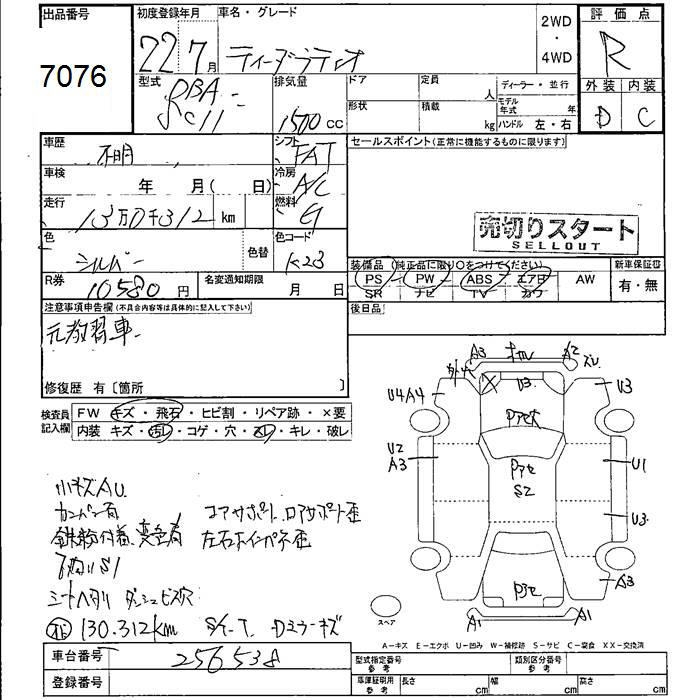 出品番号
7076
初度登録年月
22 7月
車名・グレード
ティーダラティオ
2WD
・
4WD
評価点
R
型式
DBA-
SC11
排気量
1500cc
ドア
形状
定員 人
積載 kg
ディーラー・並行
モデル年式 年
ハンドル 左・右
外装 内装
D C
車歴
不明
シフト
FAT
車検
年 月( 日)
冷房
A/C
走行
13万0千312 km
燃料
G
色
シルバー
色替
色コード
K23
R券
10580円
名変通知期限
月 日
セールスポイント(正常に機能するものに限ります)
売切りスタート
SELLOUT
装備品(純正品に限り○をつけてください)
PS PW ABS エアB AW
SR ナビ TV カワ
新車保証書
有・無
後日品
注意事項申告欄(不具合内容等は具体的に記入して下さい)
元教習車
修復歴 有〔箇所 〕
検査員記入欄
FW キズ・飛石・ヒビ割・リペア跡・×要
内装 キズ・汚レ・コゲ・穴・スレ・キレ・破レ
小キズAU
コアサポート、ロアサポート歪
鉄粉付着、変色有
下廻りS1
シートヘタリ ダッシュビス穴
130,312km
A3
A2
U3
U4A4
U3
U2
A3
S2
U1
U3
A3
A1
A1
スペア
A－キズ E－エクボ U－凹み W－補修跡 S－サビ C－腐食 XX－交換済
車台番号
256538
登録番号
型式指定番号
参考
類別区分番号
参考
車庫証明用
参考
長さ cm
幅 cm
高さ cm